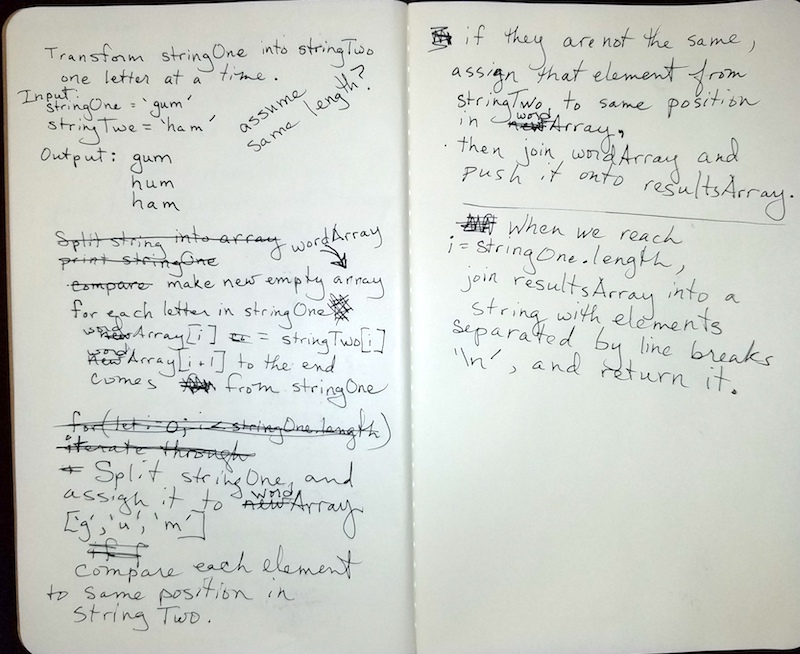 Transform stringOne into stringTwo
one letter at a time.
Input:
stringOne = 'gum'
stringTwe = 'ham'
assume
same length?
Output: gum
hum
ham
Split string into array wordArray
print stringOne
compare make new empty array
for each letter in stringOne
word
newArray[i] = stringTwo[i]
word
newArray[i+1] to the end
comes from stringOne
for(let i=0; i < stringOne.length)
iterate through
Split stringOne, and
word
assign it to newArray
['g', 'u', 'm']
compare each element
to same position in
string Two.
if they are not the same,
assign that element from
stringTwo, to same position
word
in newArray,
then join wordArray and
push it onto resultsArray.
When we reach
i = stringOne.length,
join resultsArray into a
string with elements
separated by line breaks
'\n', and return it.